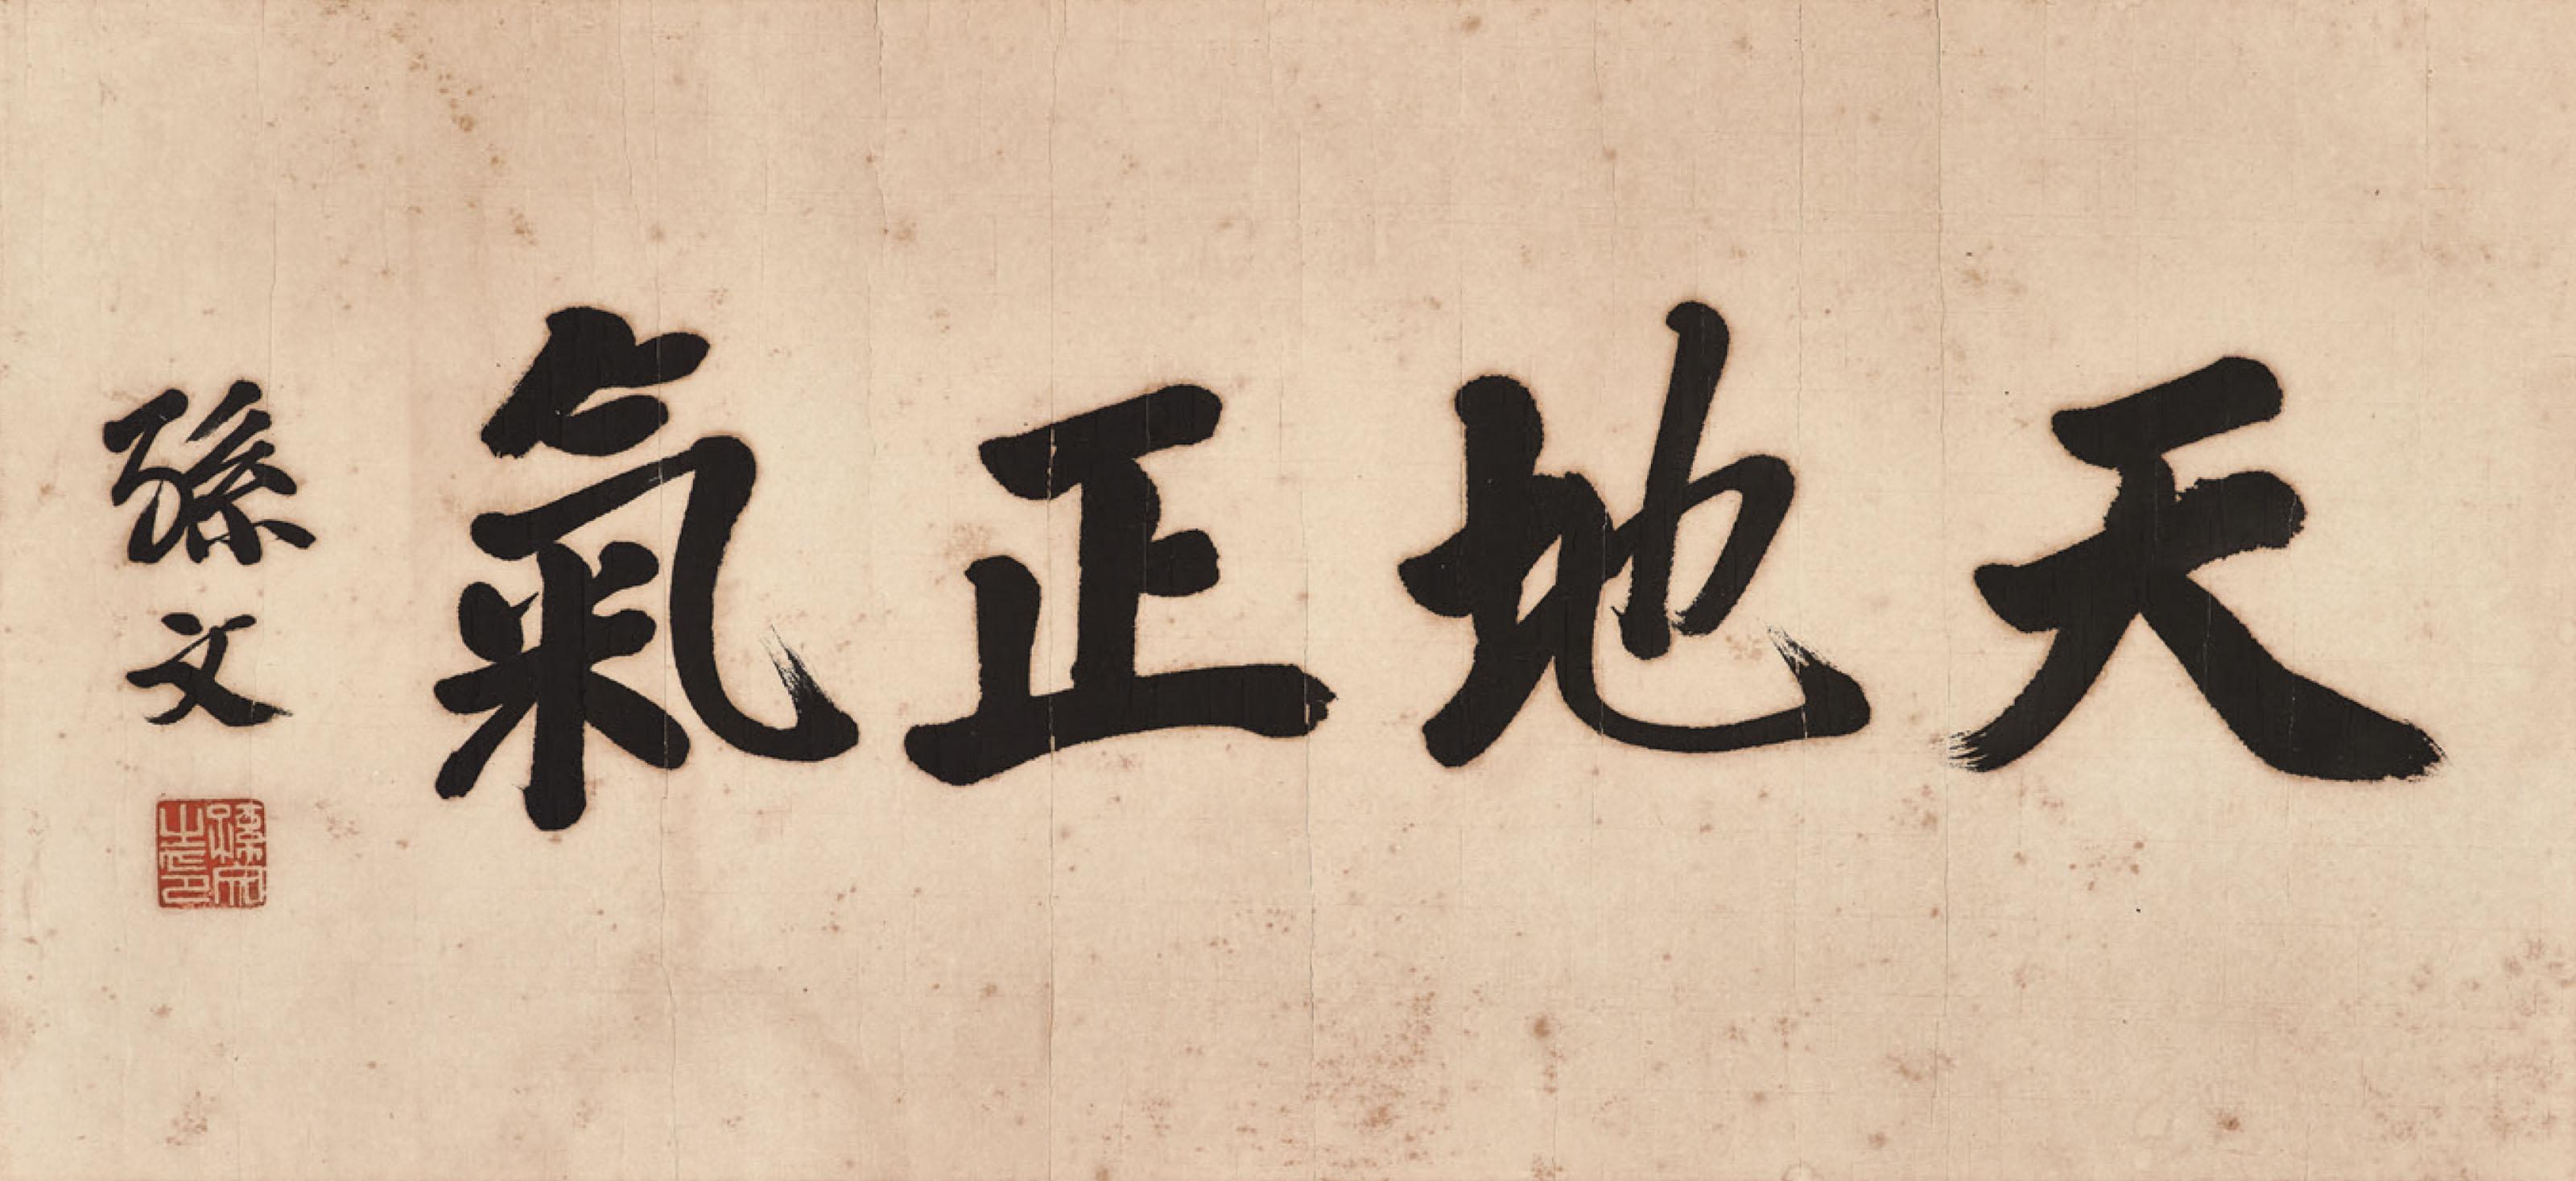 天地正氣
孫文
孫文之印